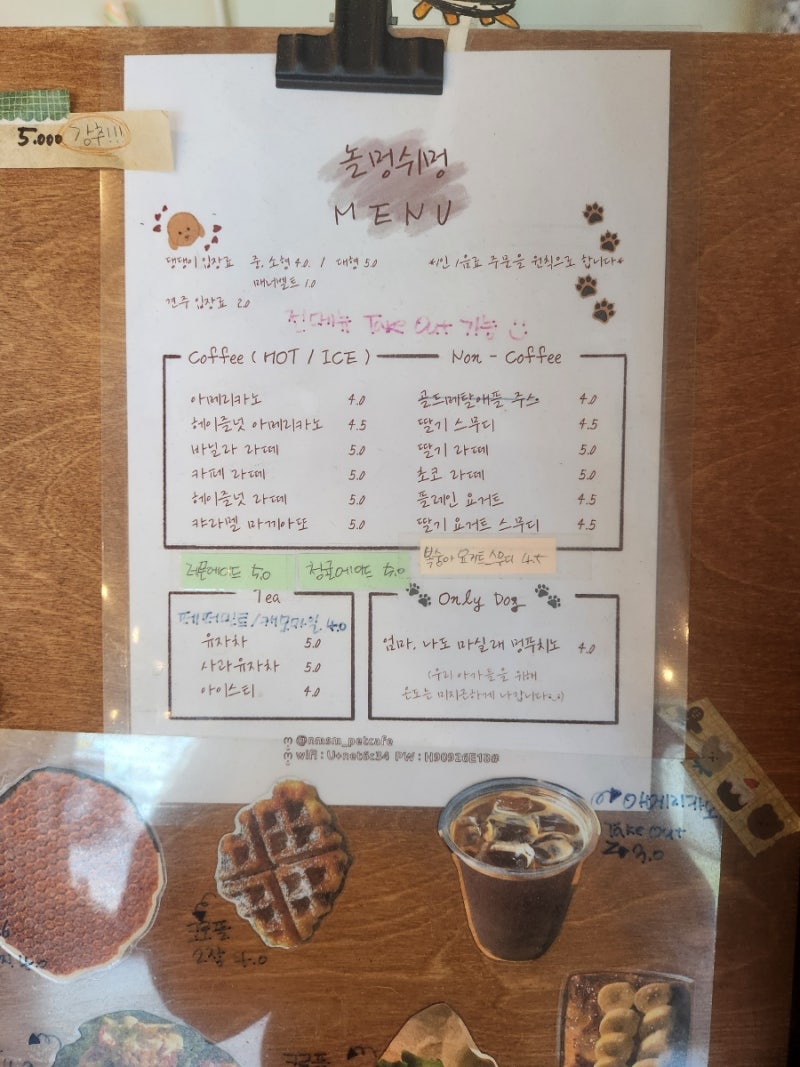 5.000 강추!!!
놀멍쉬멍
MENU
댕댕이 입장료 중,소형 4.0 / 대형 5.0
매너벨트 1.0
견주 입장료 2.0
*1인 1음료 주문을 원칙으로 합니다*
전메뉴 Take Out 가능
Coffee ( HOT / ICE )
아메리카노 4.0
헤이즐넛 아메리카노 4.5
바닐라 라떼 5.0
카페 라떼 5.0
헤이즐넛 라떼 5.0
캬라멜 마끼아또 5.0
Non - Coffee
골드메달애플 주스 4.0
딸기 스무디 4.5
딸기 라떼 5.0
초코 라떼 5.0
플레인 요거트 4.5
딸기 요거트 스무디 4.5
복숭아 요거트 스무디 4.5
레몬에이드 5.0
청포에이드 5.0
Tea
페퍼민트/캐모마일 4.0
유자차 5.0
사과유자차 5.0
아이스티 4.0
Only Dog
엄마, 나도 마실래 멍푸치노 4.0
(우리 아가들을 위해
온도는 미지근하게 나갑니다^^)
@nmsm_petcafe
wifi : U+net5c34 PW : H90926E18#
아메리카노
Take Out
3.0
크로플
2장 4.0
크로플